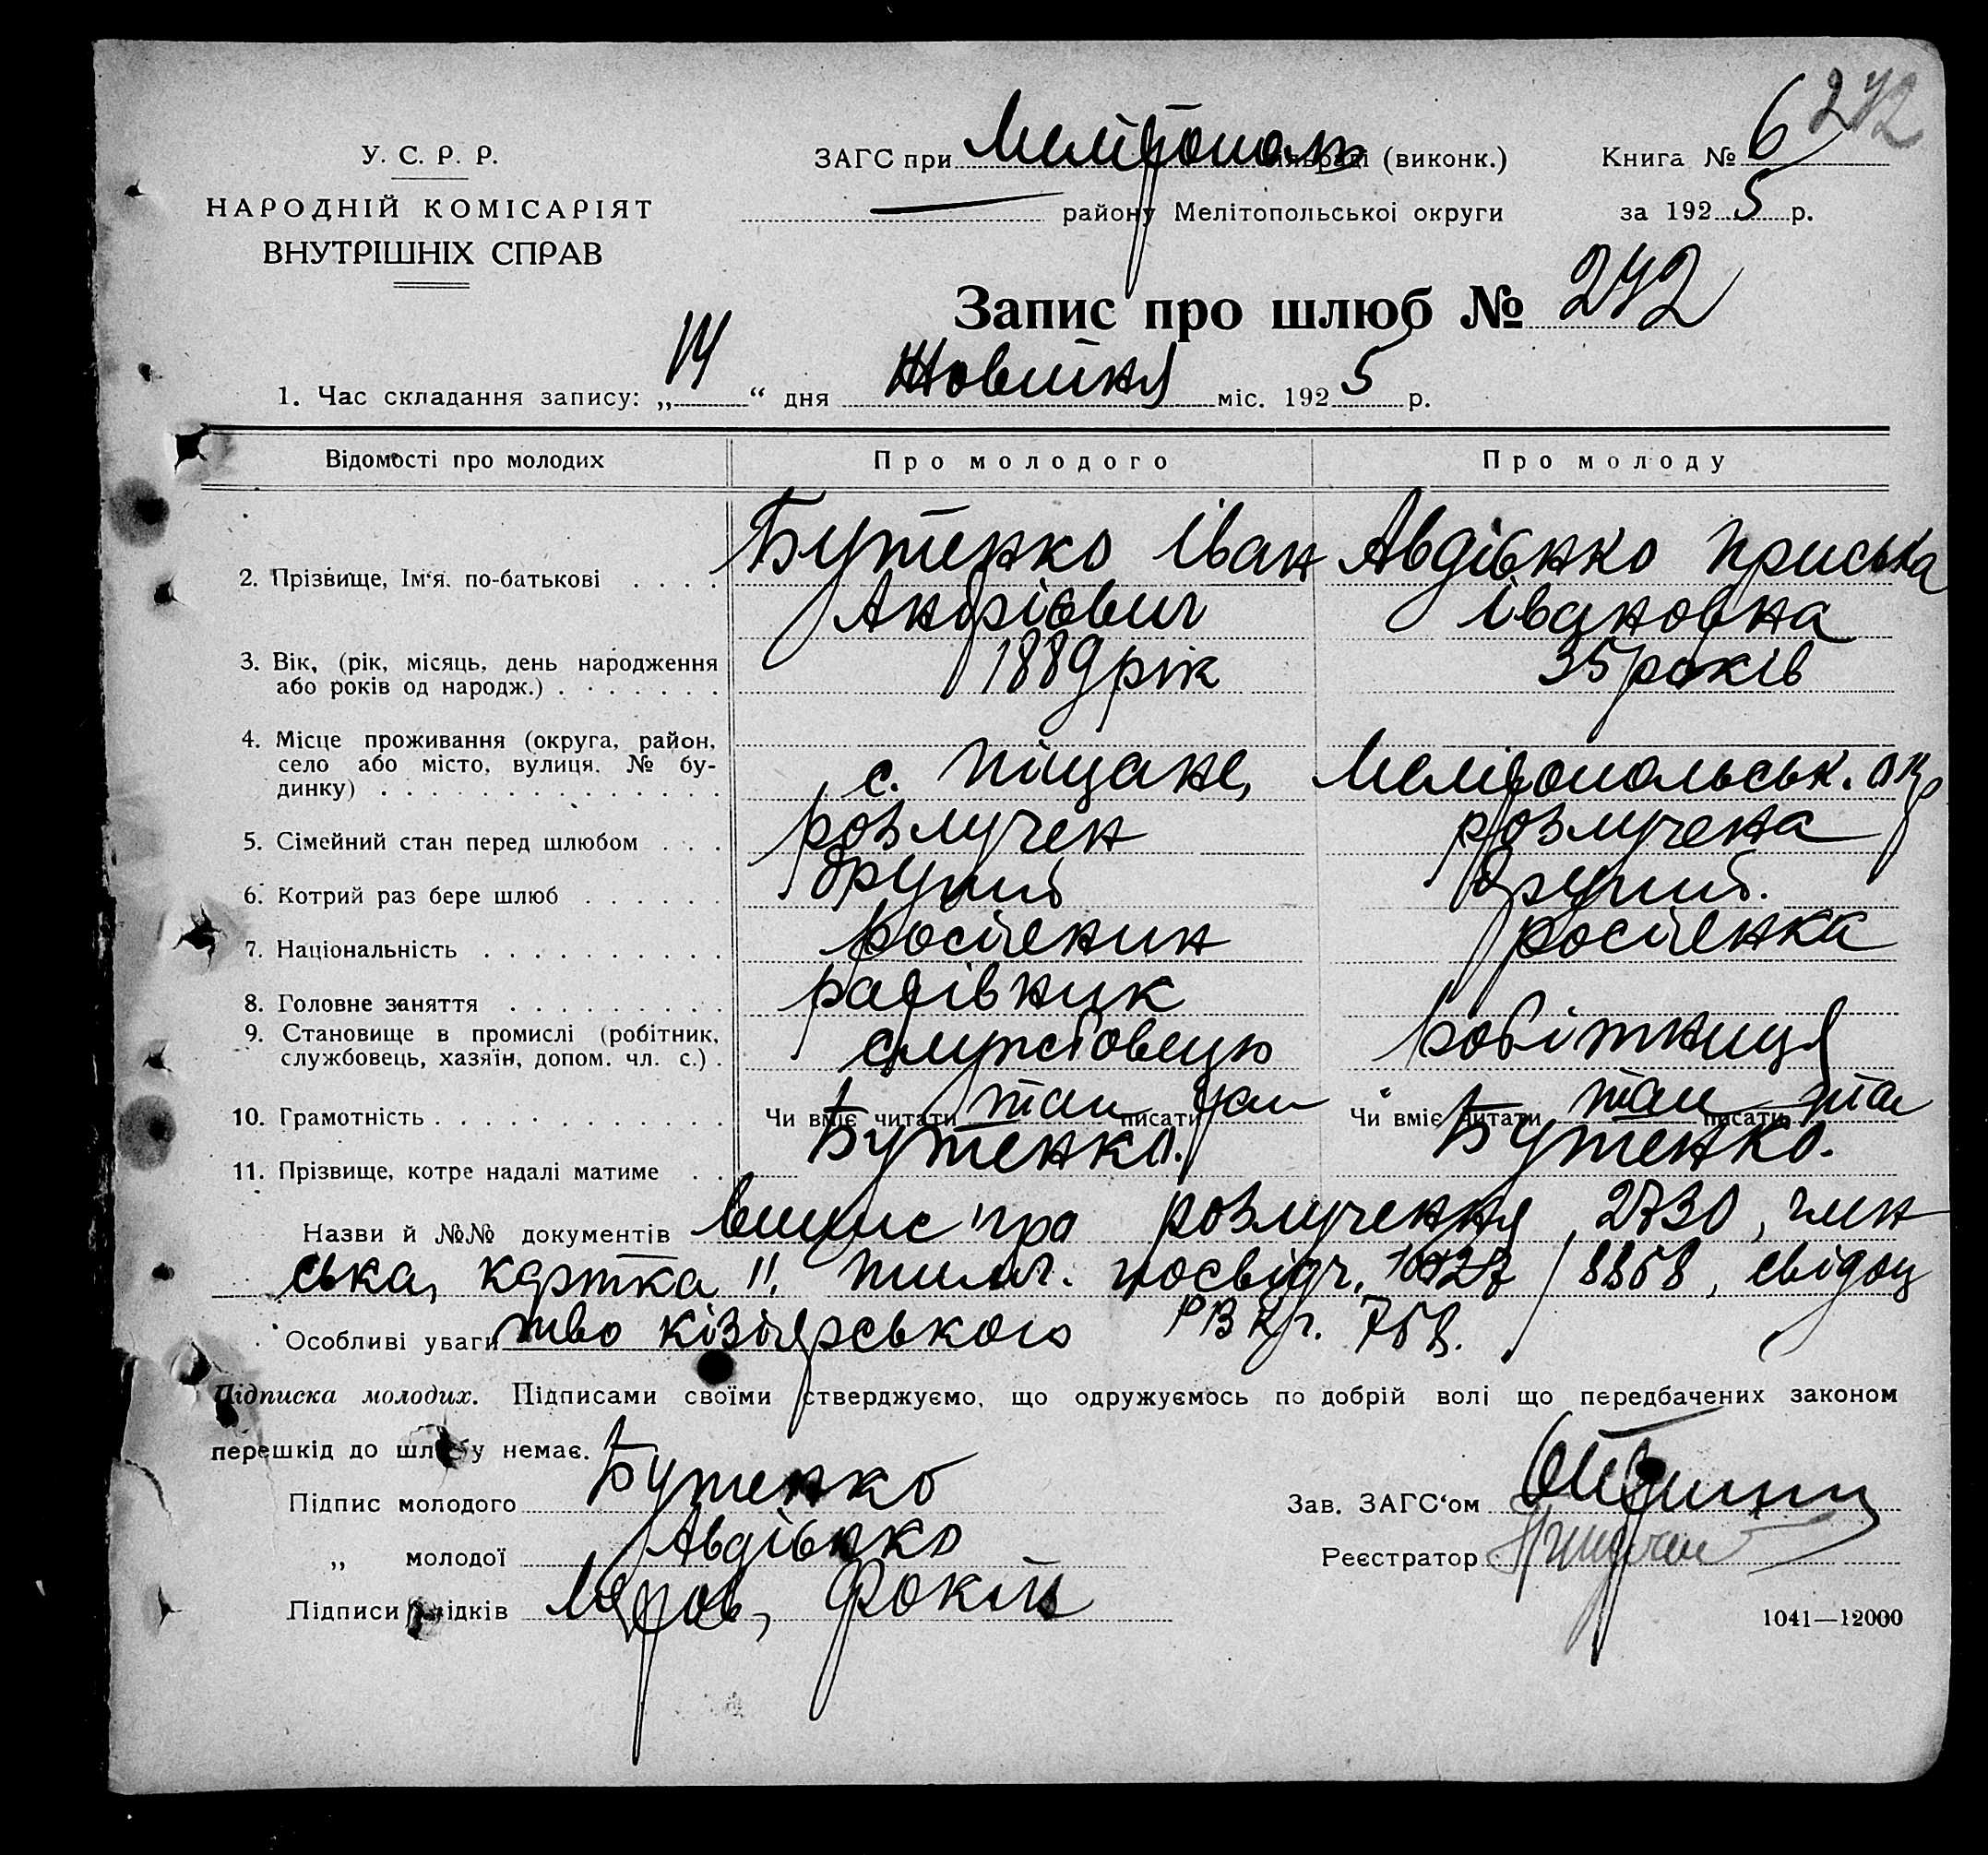 272
У. С. Р. Р.
НАРОДНІЙ КОМІСАРІЯТ
ВНУТРІШНІХ СПРАВ
ЗАГС при Мелітополь (виконк.) Книга № 6
— району Мелітопольської округи за 1925 р.
Запис про шлюб № 272
1. Час складання запису: „14“ дня Жовтня міс. 1925 р.
Відомості про молодих Про молодого Про молоду
2. Прізвище, Ім'я. по-батькові . . . . Бутенко Іван Авдієнко Приська
Андрієвич Івановна
3. Вік, (рік, місяць, день народження
або років од народж.) . . . . . . . 1889 рік 35 років
4. Місце проживання (округа, район,
село або місто, вулиця. № бу-
динку) . . . . . . . . . . . . . . . с. Піщане, Мелітопольськ. окр
5. Сімейний стан перед шлюбом . . . розлучен розлучена
6. Котрий раз бере шлюб . . . . . . другий другий.
7. Національність . . . . . . . . . . росіянин росіянка
8. Головне заняття . . . . . . . . .
9. Становище в промислі (робітник,
службовець, хазяїн, допом. чл. с.) . службовець робітниця
10. Грамотність . . . . . . . . . . . . Чи вміє читати так писати так Чи вміє читати так писати так
11. Прізвище, котре надалі матиме . . Бутенко. Бутенко.
Назви й №№ документів випис про розлучення 2730, член
ська, картка 11. тимч. посвідч. / 8858, свідоц
Особливі уваги тво кізіярського 758.
Підписка молодих. Підписами своїми стверджуємо, що одружуємось по добрій волі що передбачених законом
перешкід до шлюбу немає.
Підпис молодого Бутенко Зав. ЗАГС'ом
„ молодої Авдієнко Реєстратор
Підписи свідків Фокін
1041—12000